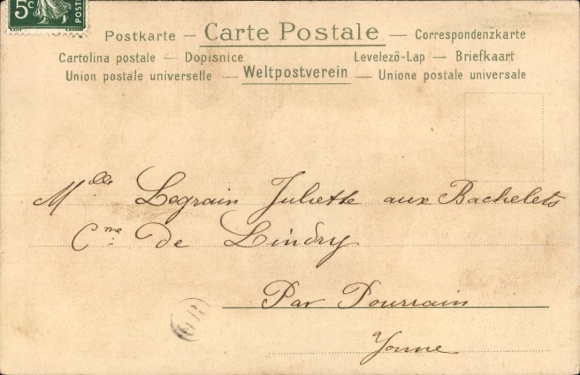 5c POSTES
Postkarte — Carte Postale — Correspondenzkarte
Cartolina postale — Dopisnice Levelező-Lap — Briefkaart
Union postale universelle — Weltpostverein — Unione postale universale
Mlle Legrain Juliette aux Bachelets
Cne de Lindry
Par Pourrain
Yonne